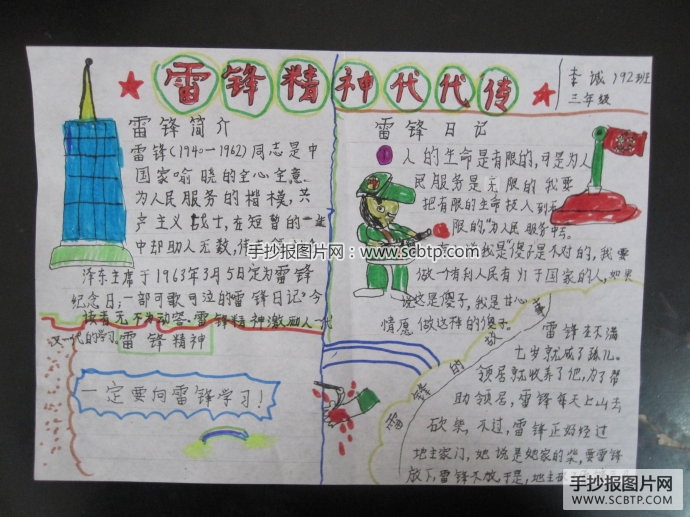 雷锋精神代代传
李诚 192班
三年级
雷锋简介
雷锋(1940-1962)同志是中
国家喻晓的全心全意
为人民服务的楷模,共
产主义战士,在短暂的一
中却助人无数,
手抄报图片网:www.scbtp.com
泽东主席于1963年3月5日定为雷锋
纪念日;一部可歌可泣的"雷锋日记"令
读者无不为动容.雷锋精神激励人一代
又一代的学习.
雷锋精神
一定要向雷锋学习!
雷锋日记
1 人的生命是有限的,可是为人
民服务是无限的我要
把有限的生命投入到无
限的"为人民服务中去。
说我是"傻子是不对的,我要
做一有利人民有利于国家的人,如果
说这是傻子,我是甘心
情愿做这样的傻子。
雷锋的故事
雷锋在不满
七岁就成了孤儿。
领居就收养了他,为了帮
助领居,雷锋每天上山去
砍柴,不过,雷锋正好经过
地主家门,她说是她家的柴,要雷锋
放下,雷锋不放,于是,地主
手抄报图片网
WWW.SCBTP.COM